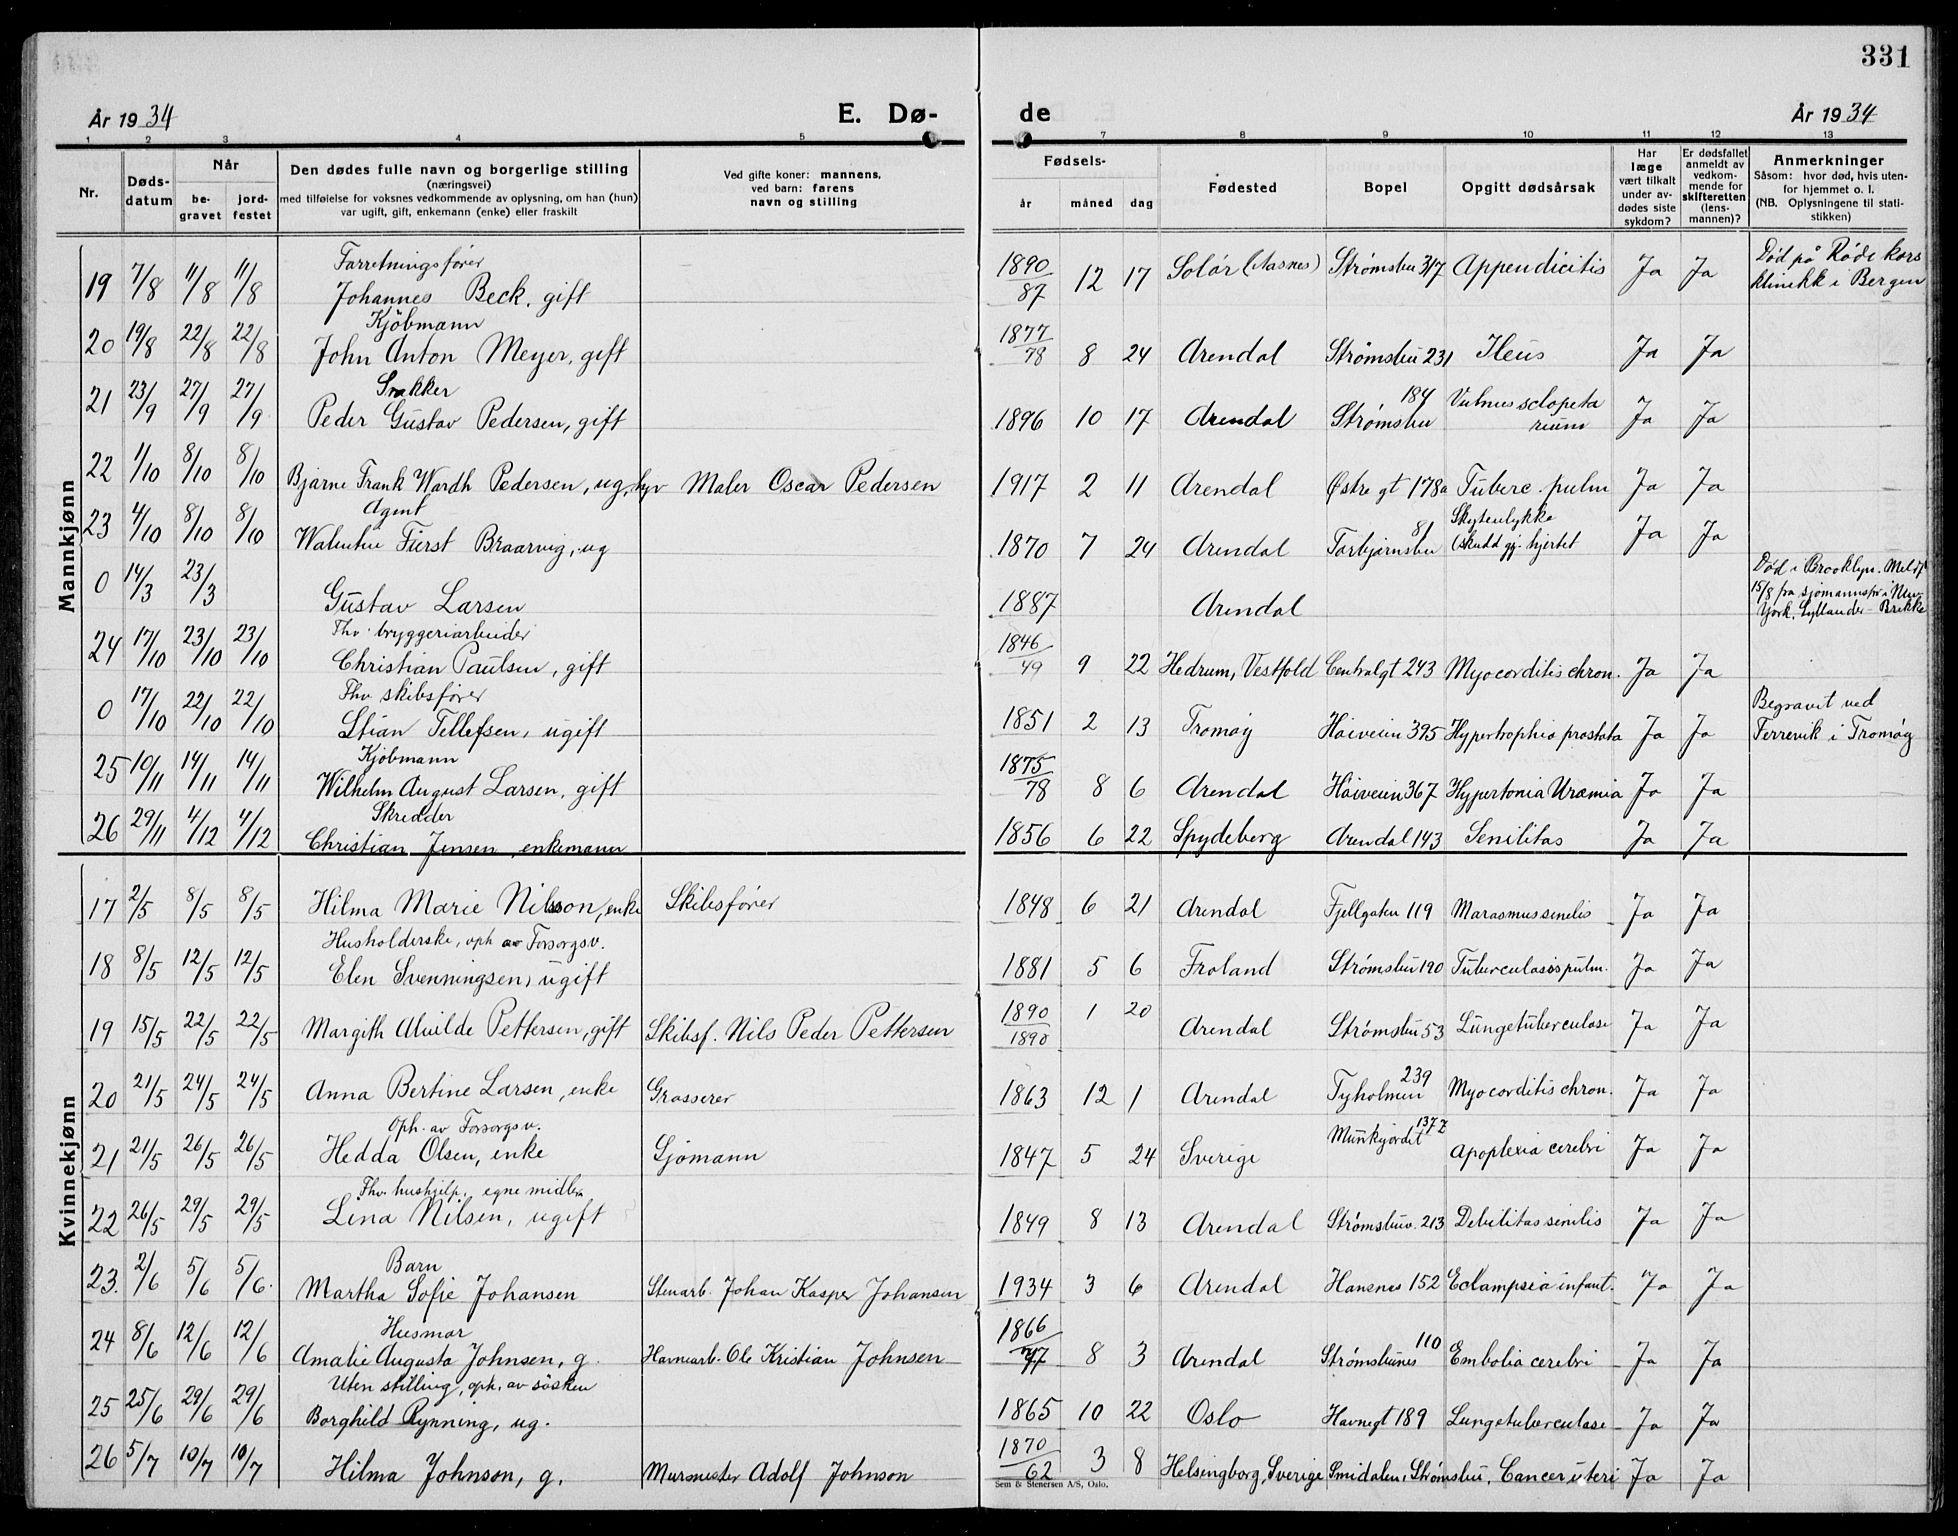 331
År 1934 E. Dø- de År 1934
1 2 3 4 5 7 8 9 10 11 12 13
Nr. Døds-datum Når be-gravet jord-festet
Den dødes fulle navn og borgerlige stilling
(næringsvei)
med tilføielse for voksnes vedkommende av oplysning, om han (hun)
var ugift, gift, enkemann (enke) eller fraskilt
Ved gifte koner: mannens,
ved barn: farens
navn og stilling
Fødsels-
år måned dag
Fødested Bopel Opgitt dødsårsak
Har læge vært tilkalt under av-dødes siste sykdom?
Er dødsfallet anmeldt av vedkom-mende for skifteretten (lens-mannen)?
Anmerkninger
Såsom: hvor død, hvis uten-for hjemmet o. l.
(NB. Oplysningene til stati-stikken)
Mannkjønn
19 7/8 11/8 11/8 Forretningsfører Johannes Beck, gift 1890/87 12 17 Solør (Aasnes) Strømsbu 317 Appendicitis Ja Ja Død på Røde kors klinikk i Bergen
20 19/8 22/8 22/8 Kjøbmann John Anton Meyer, gift 1877/78 8 24 Arendal Strømsbu 231 Ileus Ja Ja
21 23/9 27/9 27/9 Snekker Peder Gustav Pedersen, gift 1896 10 17 Arendal Strømsbu 184 Vulnus sclopetarium Ja Ja
22 1/10 8/10 8/10 Bjarne Frank Wardh Pedersen, ug. Maler Oscar Pedersen 1917 2 11 Arendal Østre gt 178a Tuberc. pulm Ja Ja
23 4/10 8/10 8/10 Agent Fürst Braarvig, ug 1870 7 24 Arendal Torbjørnsbu 81 Skyteulykke (skudd gj. hjertet Ja Ja
0 14/3 23/3 Gustav Larsen 1887 Arendal Død i Brooklyn. 15/8 fra sjømannspr. i New York,
24 17/10 23/10 23/10 Fhv. bryggeriarbeider Christian Paulsen, gift 1846/49 9 22 Hedrum, Vestfold Centralgt 243 Myocorditis chron. Ja Ja
0 17/10 22/10 22/10 Fhv. skibsfører Stian Tellefsen, ugift 1851 2 13 Tromøy Høiveien 395 Hypertrophia prostata Ja Ja Begravet ved Færevik i Tromøy
25 10/11 14/11 14/11 Kjøbmann Wilhelm August Larsen, gift 1875/78 8 6 Arendal Høiveien 367 Hypertonia Uræmia Ja Ja
26 29/11 4/12 4/12 Skredder Christian Jensen, enkemann 1856 6 22 Spydeberg Arendal 143 Senilitas Ja Ja
Kvinnekjønn
17 2/5 8/5 8/5 Hilma Marie Nilsson, enke Skibsfører 1848 6 21 Arendal Fjellgaten 119 Marasmus senilis Ja Ja
18 8/5 12/5 12/5 Husholderske, oph av Forsorgsv. Elen Svenningsen, ugift 1881 5 6 Froland Strømsbu 190 Tuberculosis pulm. Ja Ja
19 15/5 22/5 22/5 Margith Alvilde Pettersen, gift Skibsf. Nils Peder Pettersen 1890/1890 1 20 Arendal Strømsbu 53 Lungetuberculose Ja Ja
20 21/5 24/5 24/5 Anna Bertine Larsen, enke Grosserer 1863 12 1 Arendal Tyholmen 239 Myocorditis chron. Ja Ja
21 21/5 26/5 26/5 Oph. av Forsorgsv. Hedda Olsen, enke Sjømann 1847 5 24 Sverige Munkejordet 137 Apoplexia cerebri Ja Ja
22 26/5 29/5 29/5 Fhv. hushjelp, egne midler Lina Nilsen, ugift 1849 8 13 Arendal Strømsbuv. 213 Debilitas senilis Ja Ja
23. 2/6 5/6 5/6. Barn Martha Sofie Johansen Stenarb. Johan Kasper Johansen 1934 3 6 Arendal Hansnes 152 Eclampsia infant. Ja Ja
24 8/6 12/6 12/6 Husmor Amalie Augusta Johnsen, g. Havnearb. Ole Kristian Johnsen 1866/77 8 3 Arendal Strømsbunes 110 Embolia cerebri Ja Ja
25 25/6 29/6 29/6 Uten stilling, oph. av søsken Borghild Rynning, ug. 1865 10 22 Oslo Havnegt 189 Lungetuberculose Ja Ja
26 5/7 10/7 10/7 Hilma Johnson, g. Murmester Adolf Johnson 1870/62 3 8 Helsingborg, Sverige Smidalen, Strømsbu, Cancer uteri Ja Ja
Sem & Stenersen A/S, Oslo.